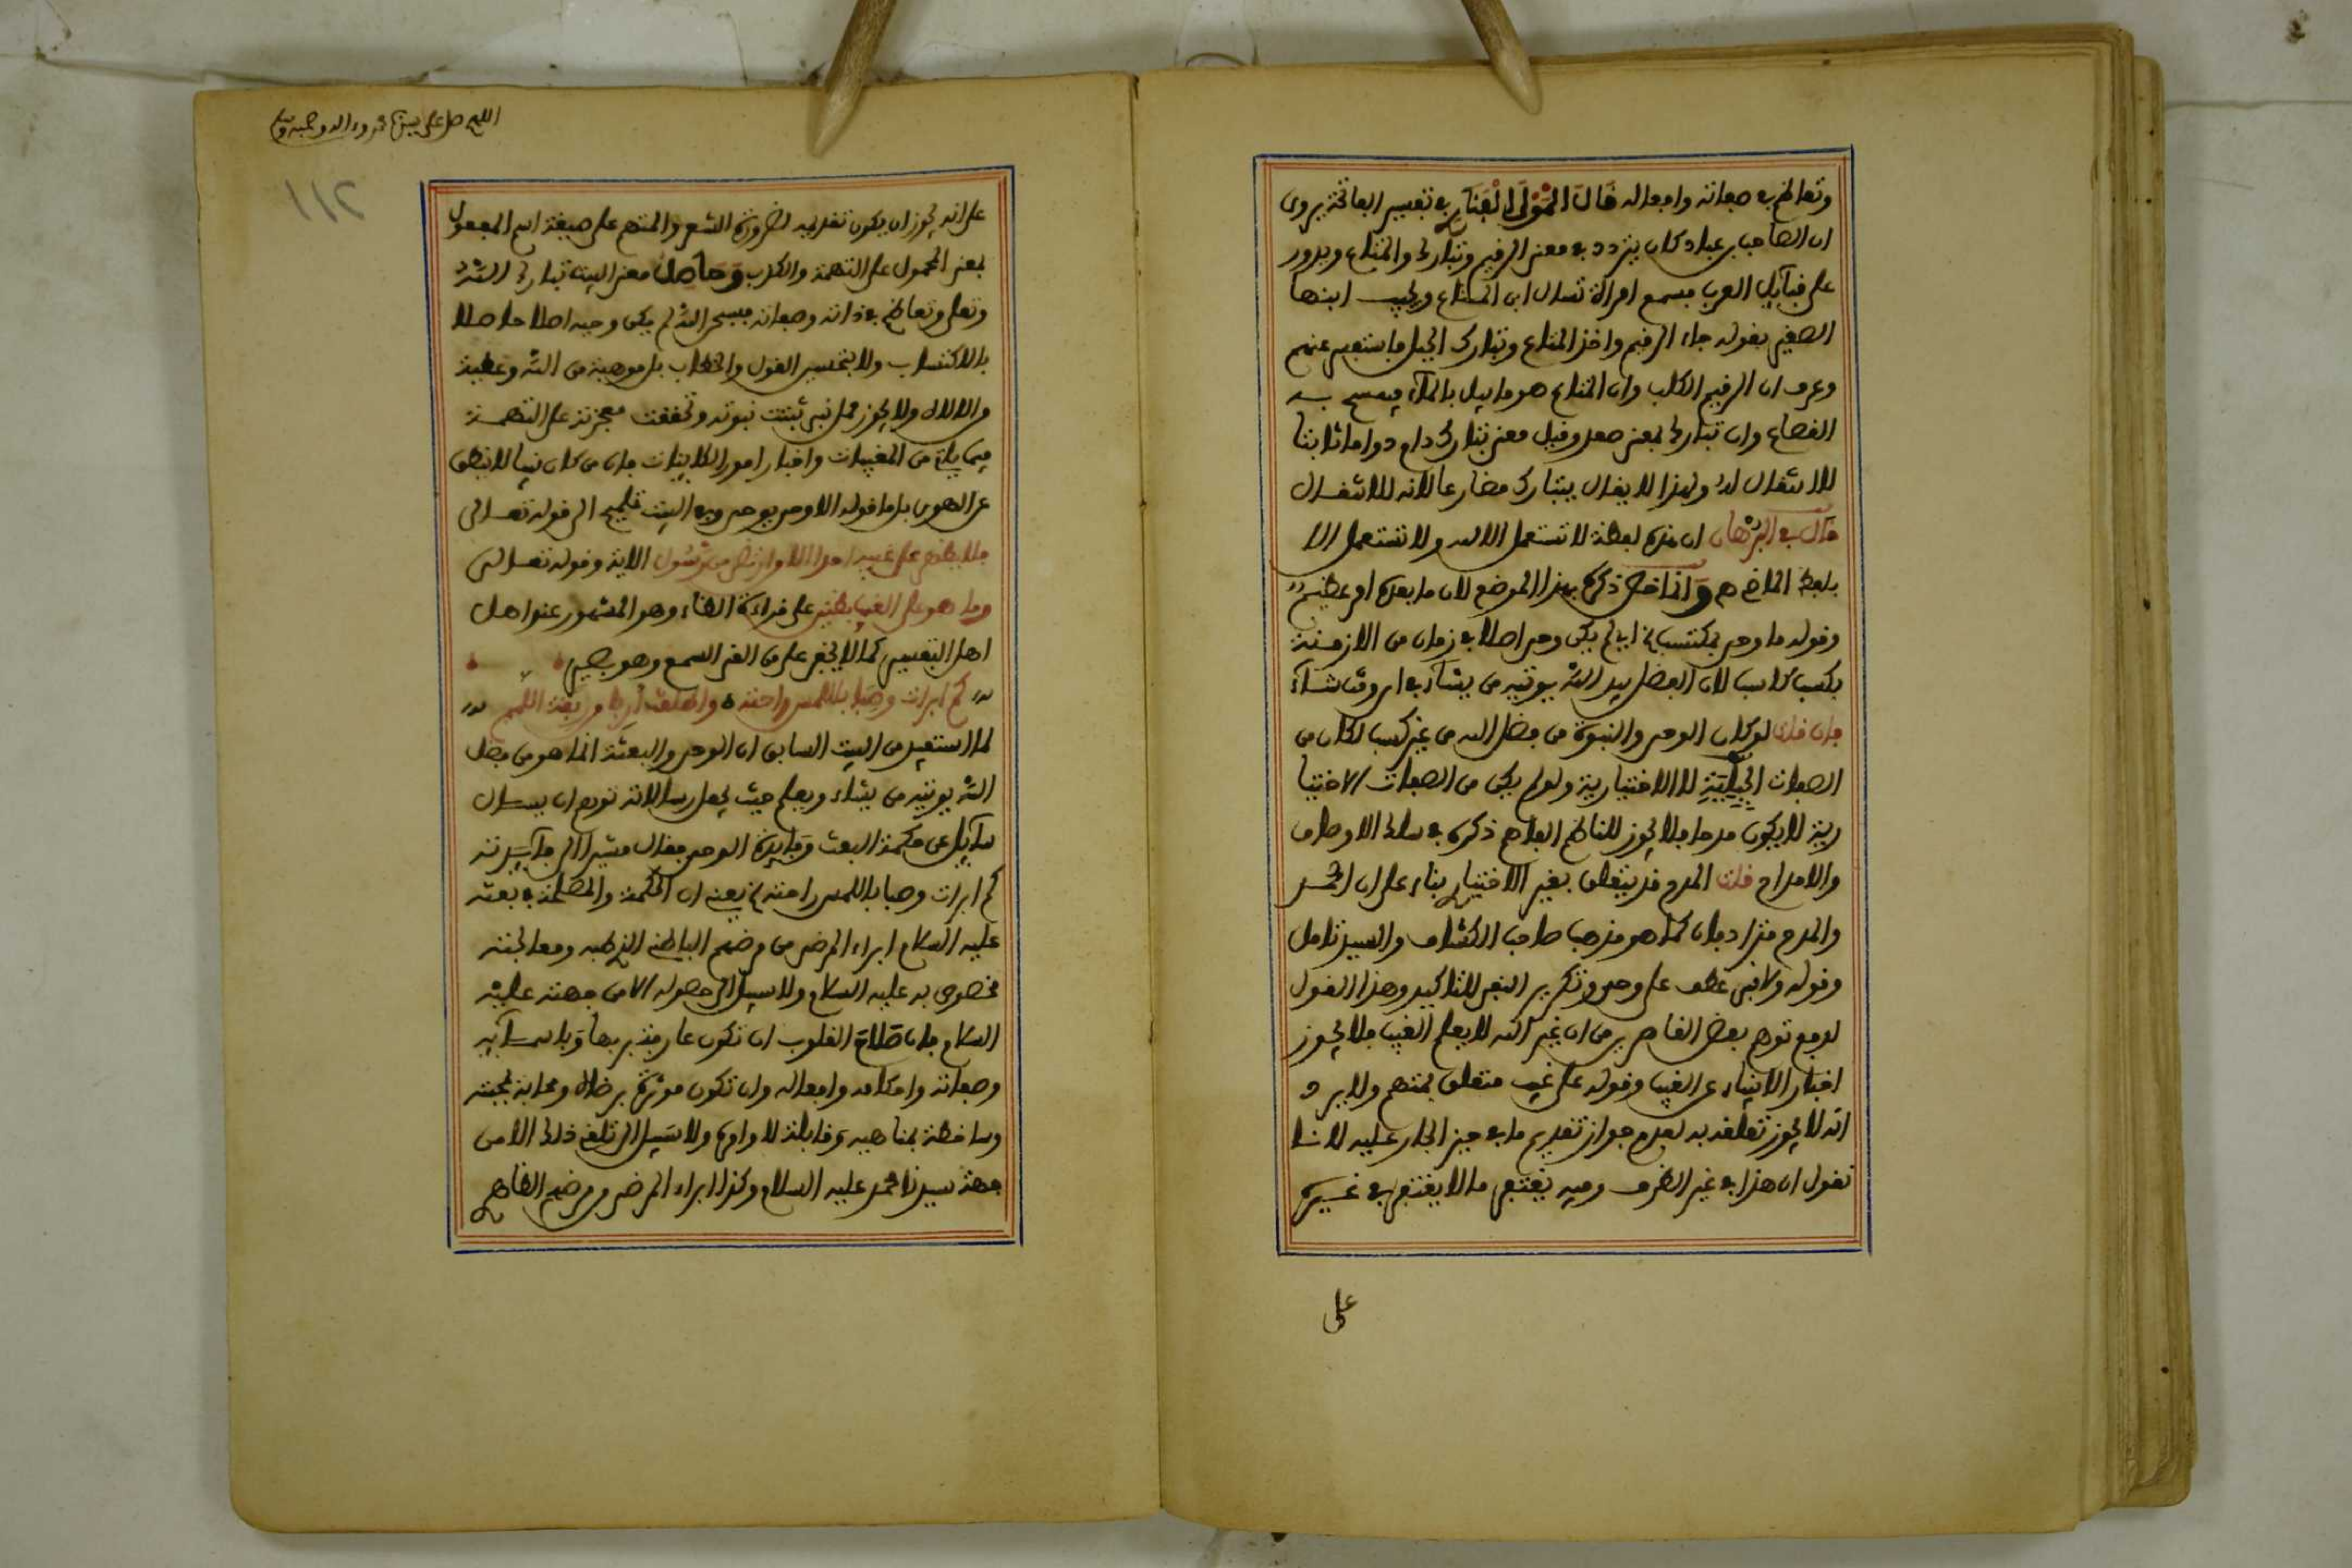 وتعاظم في صفاته وافعاله قَالَ المَوْلَى الفَنَارِي في تفسير الفاتحة يروى
ان الصاحب بن عباد كان يتردد في معنى الرقيم وتبارك والمتاع ويدور
على قبآيل العرب فسمع امراة تسال اين المتاع ويجيب ابنها
الصغير بقوله جاء الرقيم واخذ المتاع وتبارك الجبل فاستفسر عنهم
وعرف ان الرقيم الكلب وان المتاع هو ما يبل بالمآء فيمسح به
القصاع وان تبارك بمعنى صعد وقيل معنى تبارك دام دواما ثابتا
لا انتقال له ولهذا لا يقال يتبارك مضارعا لانه للانتقال
قال في البرهان ان هذه لفظة لا تستعمل الا لله ولا تستعمل الا
بلفظ الماضي هم وَانما خص ذكره بهذا الموضع لان ما بعده امر عظيم
وقوله ما وحي بمكتسب اي لم يكن وحي اصلا في زمان من الازمنة
بكسب كاسب لان الفضل بيد الله يوتيه من يشآء في اي وقت شآء
فان قلت لو كان الوحي والنبوة من فضل الله من غير كسب لكان من
الصفات الجِبِلِّيَّةِ لا الاختيارية ولو لم يكن من الصفات الاختيا
رية لا يكون مدحا فلا يجوز للناظم الفاهم ذكره في سلك الاوصاف
والامداح قلت المدح قد يتعلق بغير الاختيار بناء على ان الحمد
والمدح مترادفان كما هو مذهب صاحب الكشاف والسيد تامل
وقوله ولا نبي عطف على وحي وتكرير النفي للتاكيد وهذا القول
لدفع توهم بعض القاصرين من ان غير الله لا يعلم الغيب فلا يجوز
اخبار الانبياء عن الغيب وقوله على غيب متعلق بمتهم ولا يرد
انه لا يجوز تعلقه به لعدم جواز تقديم ما في حيز الجار عليه لانا
نقول ان هذا في غير الظرف وفيه يغتفر ما لا يغتفر في غيره
على
اللهم صل على سيدنا محمد وءاله وصحبه وسلم
١١٢
على انه يجوز ان يكون تقديمه لضرورة الشعر والمتهم على صيغة اسم المفعول
بمعنى المحمول على التهمة والكذب وَحَاصل معنى البيت تبارك الله
وتعلى وتعاظم في ذاته وصفاته فسبحن الله لم يكن وحيه اصلا حاصلا
بالاكتساب ولا بتحسين القول والخطاب بل موهبة من الله وعطية
من الاله ولا يجوز حمل نبي ثبتت نبوته وتحققت معجزته على التهمة
فيما ياتي من المغيبات واخبار امور الكاينات فان من كان نبيا لا ينطق
عن الهوى بل ما قوله الا وحي يوحى وفي البيت تلميح الى قوله تعالى
فلا يظهر على غيبه احدا الا من ارتضى من رسول الاية وقوله تعالى
وما هو على الغيب بظنين على قراءة الظاء وهو المشهور عند اهل
اهل التفسير كما لا يخفى على من القى السمع وهو بصير
كم ابرات وصبا باللمس راحته واطلقت اربا من ربقة اللمم
لما استفيد من البيت السابق ان الوحي والبعثة انما هو من فضل
الله يوتيه من يشاء ويعلم حيث يجعل رسالاته توهم ان يسال
سآيل عن حكمة البعث وَفايدة الوحي فقال مشيرا الى فآيدته
كم ابرات وصبا باللمس راحته يعني ان الحكمة والمصلحة في بعثه
عليه السلام ابراء المرضى من مرضهم الباطن الذي طبه ومعالجته
مخصوص به عليه السلام ولا سبيل الى حصوله الا من جهته عليه
السلام فان صَلاحَ القلوب ان تكون عارفة بربها وَباسمآيه
وصفاته واحكامه وافعاله وان تكون موثرة برضاه ومحابه مجتنبة
وساخطة بمناهيه وقابلة لاوامره ولا سبيل الى تلقي ذلك الا من
جهة سيدنا محمد عليه السلام وكذا ابراء المرضى من مرضهم الظاهر